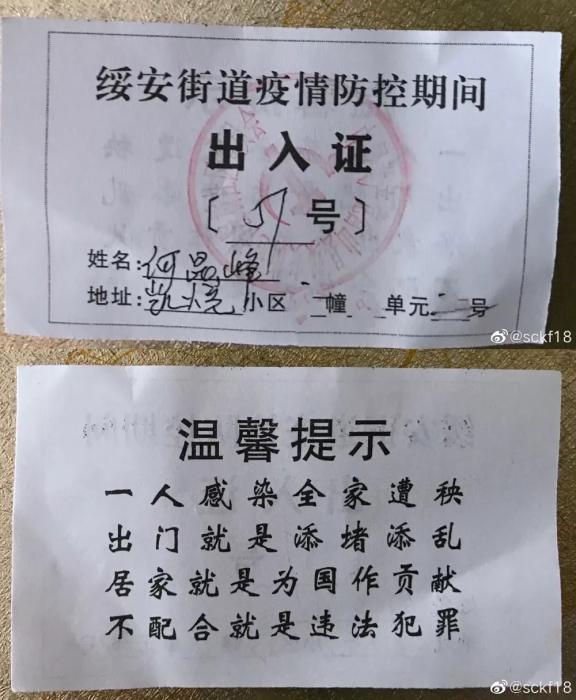 绥安街道疫情防控期间
出入证
〔51号〕
姓名:何晶峰
地址:凯旋小区 幢 单元 号
@sckf18
温馨提示
一人感染全家遭秧
出门就是添堵添乱
居家就是为国作贡献
不配合就是违法犯罪
@sckf18